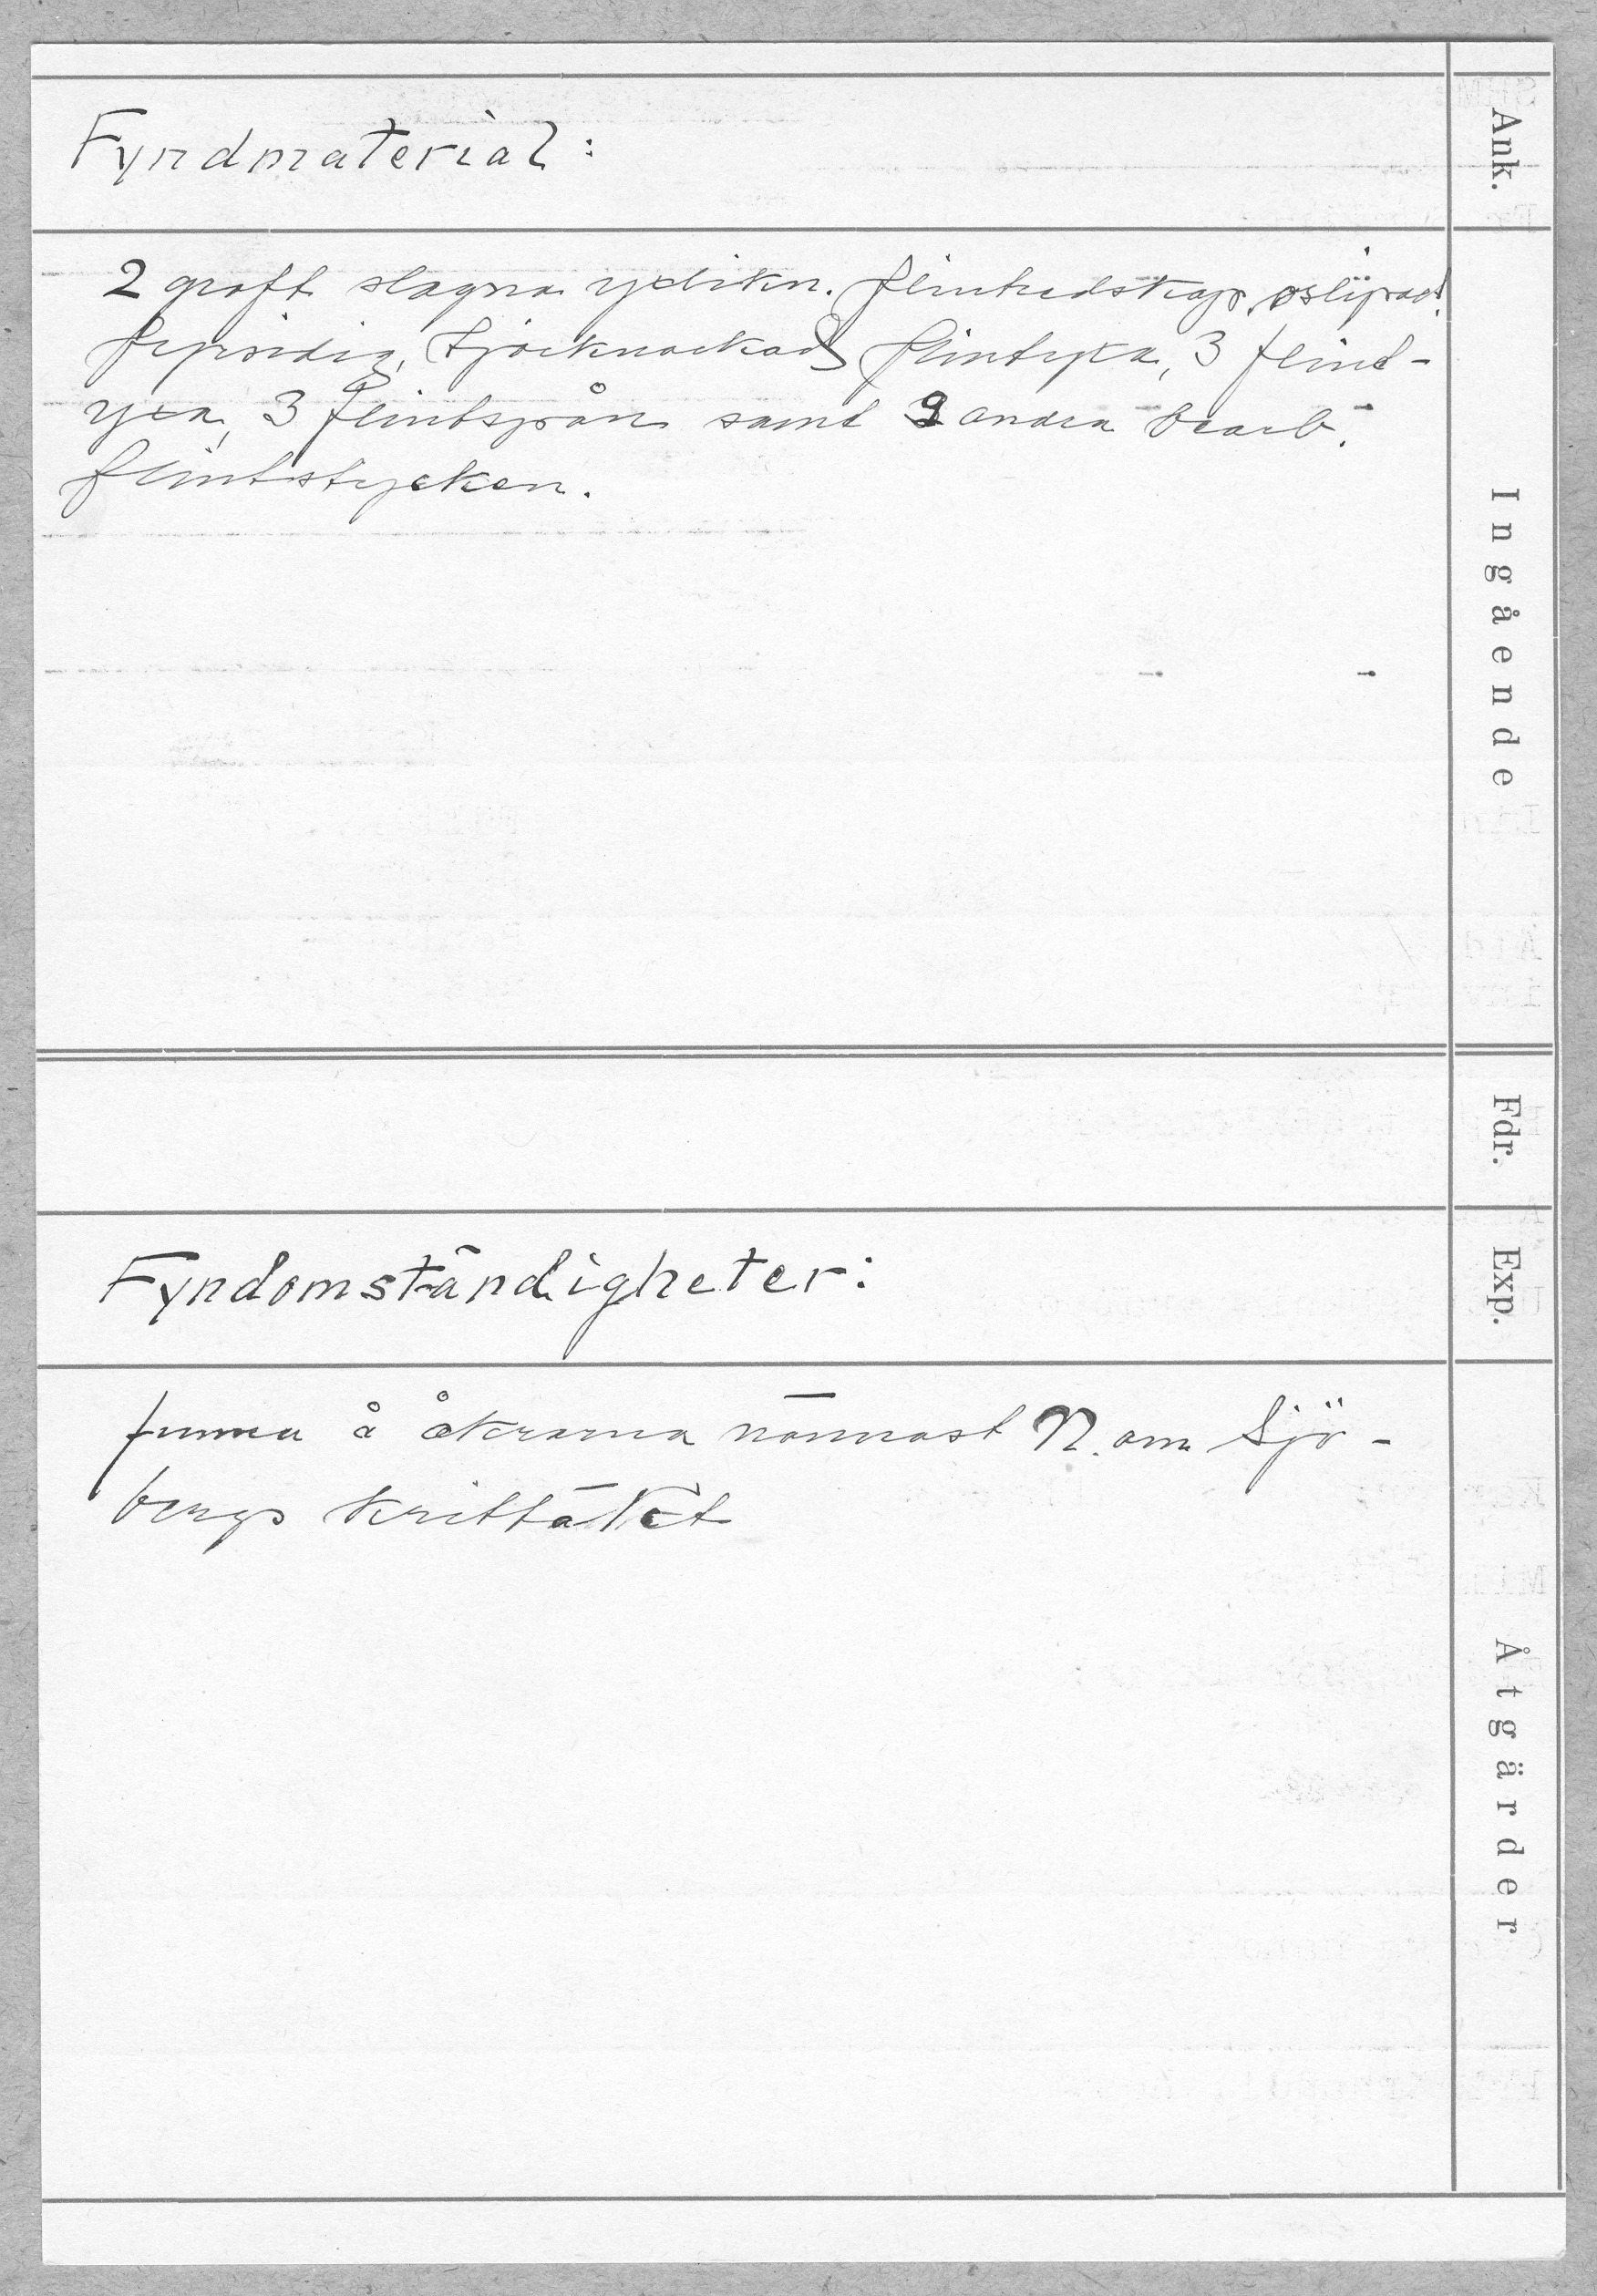 Fyndmaterial:
Ank.
2 groft slagna yxlikn. flintredskap, oslipad
fyrsidig, tjocknackad flintyxa, 3 flint-
yxa, 3 flintspån samt 9 andra bearb.
flintstycken.
Ingående
Fdr.
Fyndomständigheter:
Exp.
funna å åkrarna närmast N. om Sjö-
bergs
Åtgärder